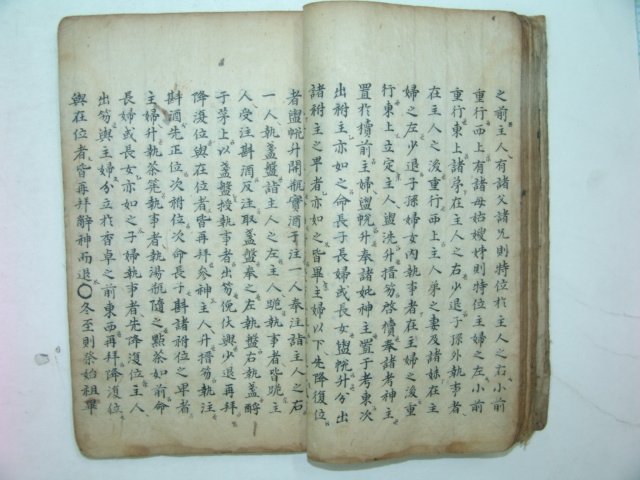 之前主人有諸父諸兄則特位於主人之右小前
重行西上有諸母姑嫂姊則特位主婦之左小前
重行東上諸弟在主人之右少退子孫外執事者
在主人之後重行西上主人弟之妻及諸妹在主
婦之左少退子孫婦女內執事者在主婦之後重
行東上立定主人盥洗升搢笏啓櫝奉諸考神主
置於櫝前主婦盥帨升奉諸妣神主置于考東次
出祔主亦如之命長子長婦或長女盥帨升分出
諸祔主之卑者亦如之皆畢主婦以下先降復位
者盥帨升開瓶實酒于注一人奉注詣主人之右
一人執盞盤詣主人之左主人跪執事者皆跪主
人受注斟酒反注取盞盤奉之左執盤右執盞酹
于茅上以盞盤授執事者出笏俛伏興少退再拜
降復位與在位者皆再拜參神主人升搢笏執注
斟酒先正位次祔位次命長子斟諸祔位之卑者
主婦升執茶筅執事者執湯瓶隨之點茶如前命
長婦或長女亦如之子婦執事者先降復位主人
出笏與主婦分立於香卓之前東西再拜降復位
與在位者皆再拜辭神而退〇冬至則祭始祖畢